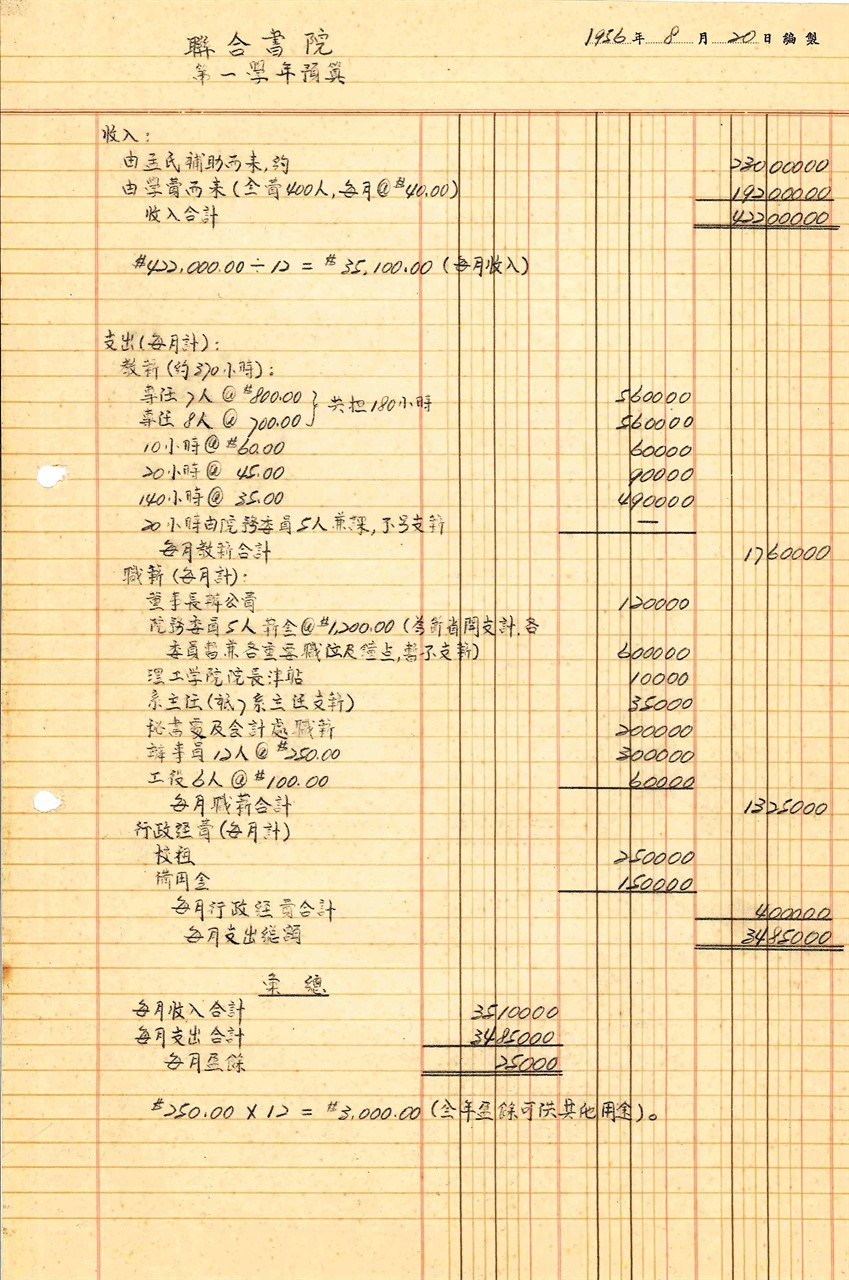 1956年8月20日編製
聯合書院
第一學年預算
收入:
由孟民補助而來,約 23000000
由學費而來(全費400人,每月@$40.00) 19200000
收入合計 42200000
$422,000.00÷12 = $35,100.00 (每月收入)
支出(每月計):
教薪(約370小時):
專任7人@$800.00 560000
共担180小時
專任8人@ 700.00 560000
10小時@$60.00 60000
20小時@ 45.00 90000
140小時@ 35.00 490000
20小時由院務委員5人兼課,不另支薪 —
每月教薪合計 1760000
職薪(每月計):
董事長辦公費 120000
院務委員5人薪金@$1,200.00 (為節省開支計,各
委員暫兼各重要職位及鐘点,暫不支薪) 600000
理工学院院長津貼 10000
系主任(祇7系主任支薪) 35000
秘書處及会計處職薪 200000
辦事員12人@$250.00 300000
工役6人@$100.00 60000
每月職薪合計 1325000
行政經費(每月計)
校租 250000
備用金 150000
每月行政經費合計 400000
每月支出總額 3485000
彙總
每月收入合計 3510000
每月支出合計 3485000
每月盈餘 25000
$250.00 × 12 = $3,000.00 (全年盈餘可供其他用途)。